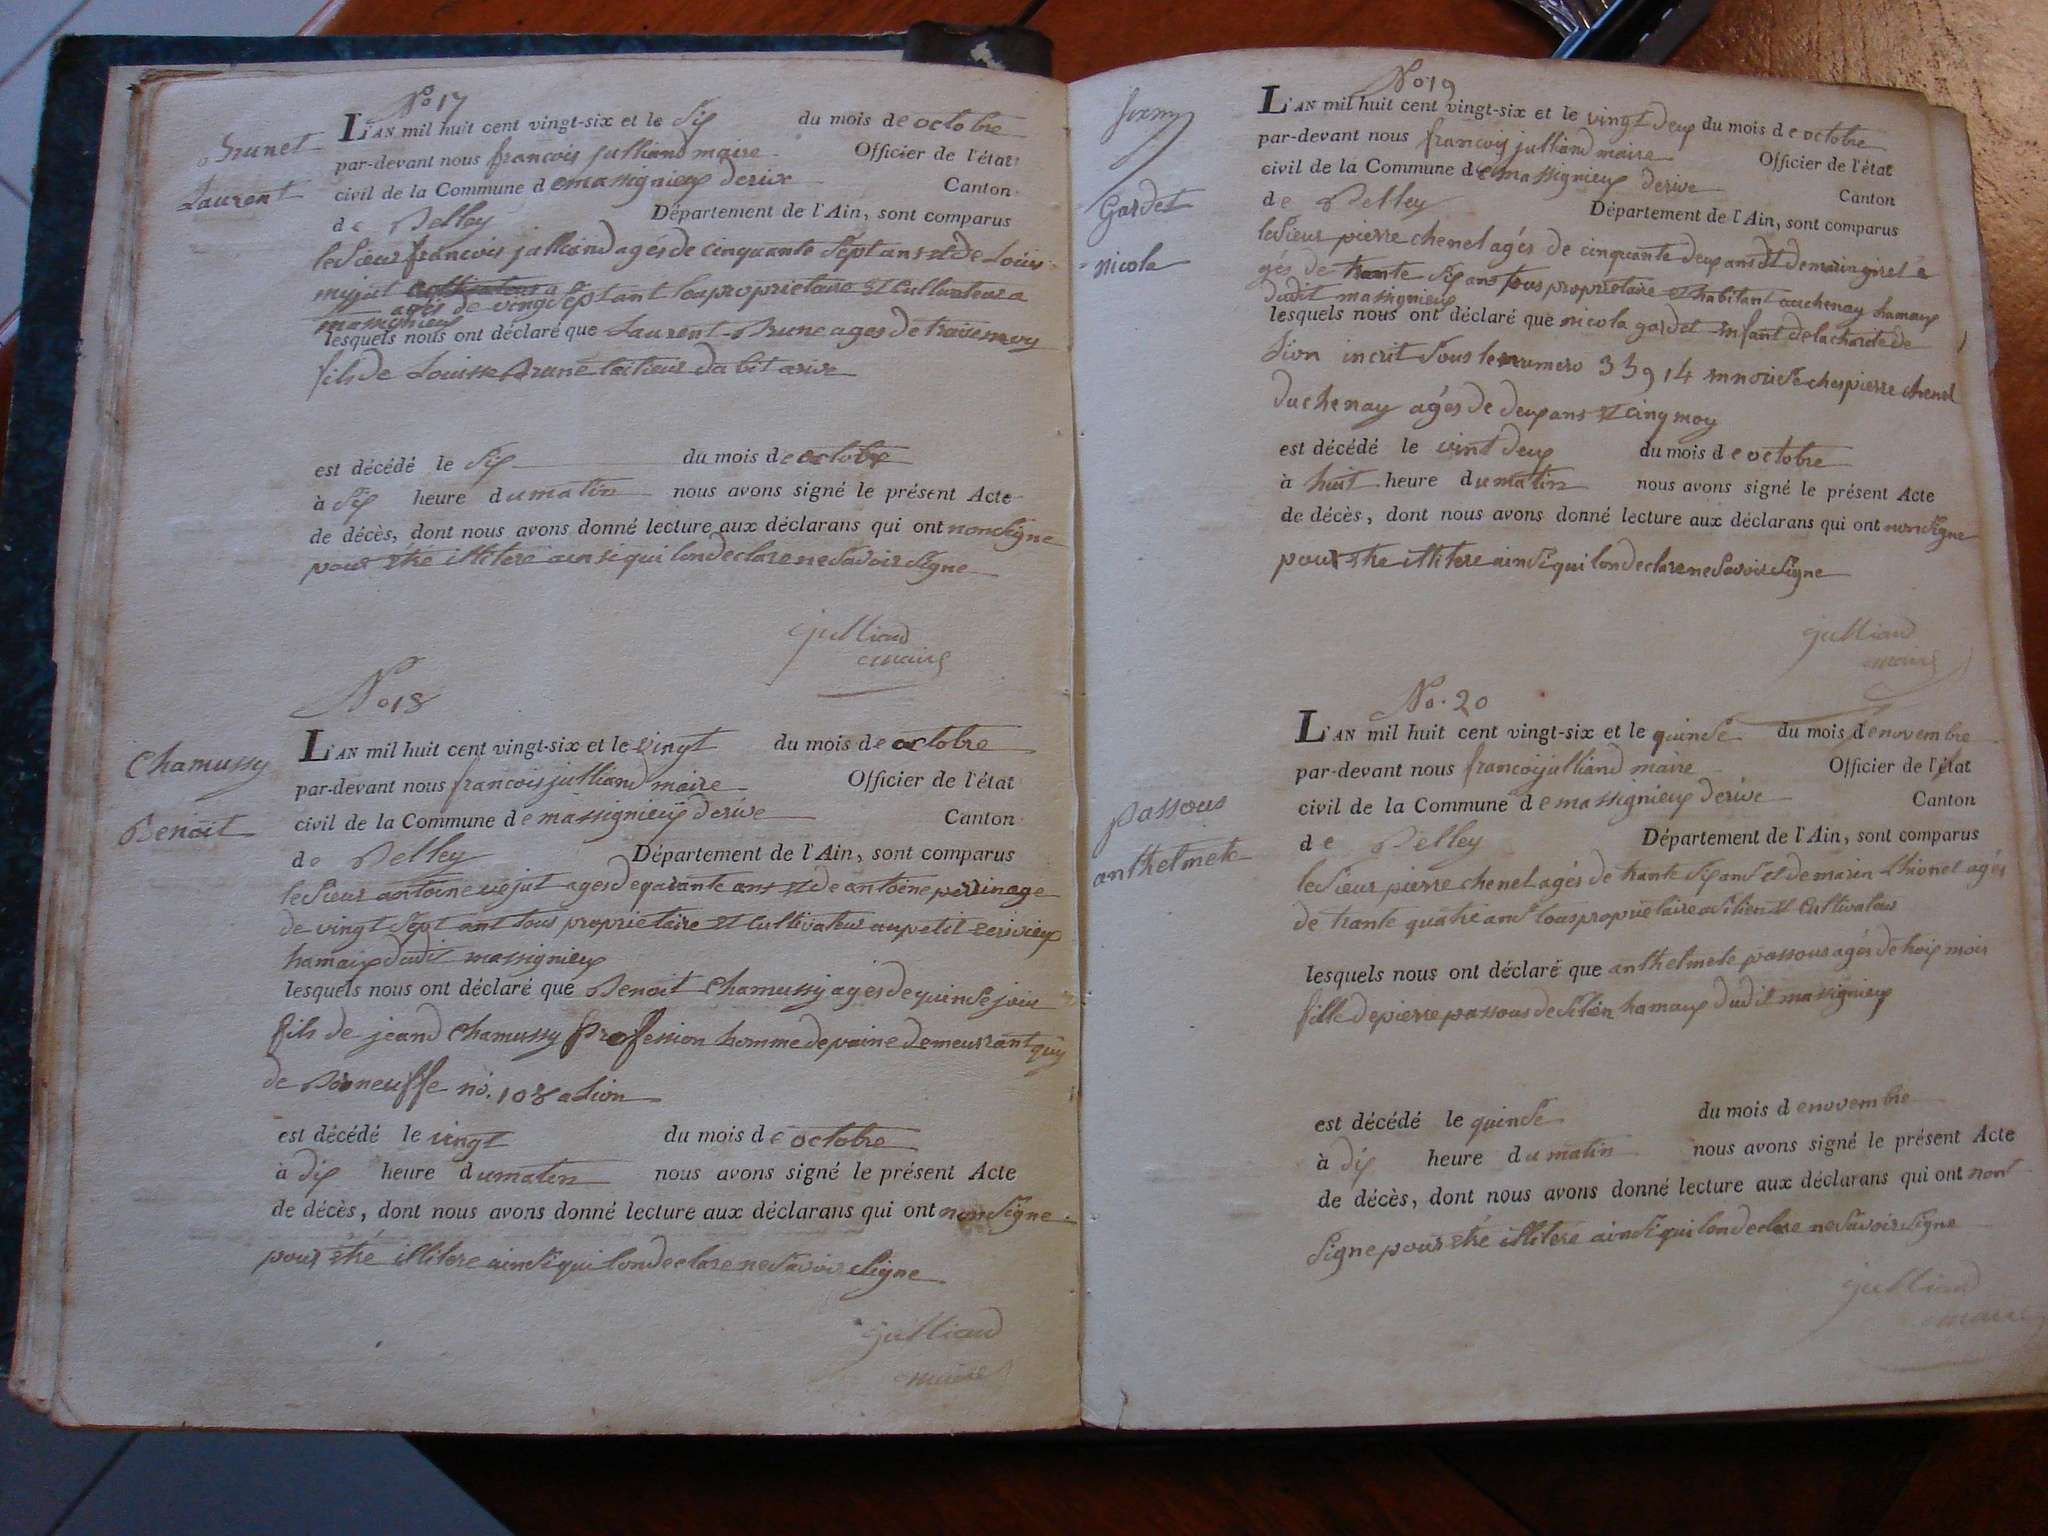 No 17
Brunet
Laurent
L'AN mil huit cent vingt-six et le six du mois de octobre
par-devant nous francois julliand maire Officier de l'état
civil de la Commune de masignieux derive Canton
de Belley Département de l'Ain, sont comparus
le Sieur francois julliand agés de cinquante Sept ans et de Louis
myjat cultivateur a
agés de vingt Septant tous proprietaire et Cultivateur a
massignieux
lesquels nous ont déclaré que Laurent Brune ages de traise moy
fils de Louisse Brune
est décédé le six du mois de octobre
à six heure du matin nous avons signé le présent Acte
de décès, dont nous avons donné lecture aux déclarans qui ont non signe
pour etre illitere ainsi qui lon declare ne Savoir Signe
julliand
maire
No 18
Chamussy
Benoit
L'AN mil huit cent vingt-six et le vingt du mois de octobre
par-devant nous francois julliand maire Officier de l'état
civil de la Commune de massignieux derive Canton
de Belley Département de l'Ain, sont comparus
le Sieur antoine vejut ages de qarante ans et de antoine perrin age
de vingt Sept ant tous proprietaire et Cultivateur au petit
hamaux dudit massignieux
lesquels nous ont déclaré que Benoit Chamussy ages de quinse jour
fils de jean Chamussy Proffession homme de paine demeurrant quy
de Bonneuffe no. 108 a Lion
est décédé le vingt du mois de octobre
à dix heure du matin nous avons signé le présent Acte
de décès, dont nous avons donné lecture aux déclarans qui ont non Signe
pour etré illitere ainsi qui lon declare ne Savoir Signe
julliand
maire
No 19
Gardet
nicola
L'AN mil huit cent vingt-six et le vingt deux du mois de octobre
par-devant nous francois julliand maire Officier de l'état
civil de la Commune de massignieux derive Canton
de Belley Département de l'Ain, sont comparus
le Sieur pierre chenel agés de cinquante deux ans et de marin giret a
gés de trante Six ans tous proprietaire et habitant au chenay hamaux
dudit massignieux
lesquels nous ont déclaré que nicola gardet Enfant de la charite de
Lion incrit Sous le numero 33914 en nourise ches pierre chenel
du chenay agés de deux ans et cinq moy
est décédé le vint deux du mois de octobre
à huit heure du matin nous avons signé le présent Acte
de décès, dont nous avons donné lecture aux déclarans qui ont non Signe
pour etre illitere ainsi qui lon declare ne Savoir Signe
julliand
maire
No. 20
passous
anthelmete
L'AN mil huit cent vingt-six et le quinse du mois de novembre
par-devant nous francois julliand maire Officier de l'état
civil de la Commune de massignieux derive Canton
de Belley Département de l'Ain, sont comparus
le Sieur pierre chenel agés de trante Six ans et de marin Lhionet agés
de trante quatre ans tous proprietaire a Silien et Cultivateur
lesquels nous ont déclaré que anthelmete passous agés de trois mois
fille de pierre passous de Silien hamaux dudit masignieux
est décédé le quinse du mois de novembre
à dix heure du matin nous avons signé le présent Acte
de décès, dont nous avons donné lecture aux déclarans qui ont nont
Signe pour etré illitere ainsi qui lon declare ne Savoir Signe
julliand
maire